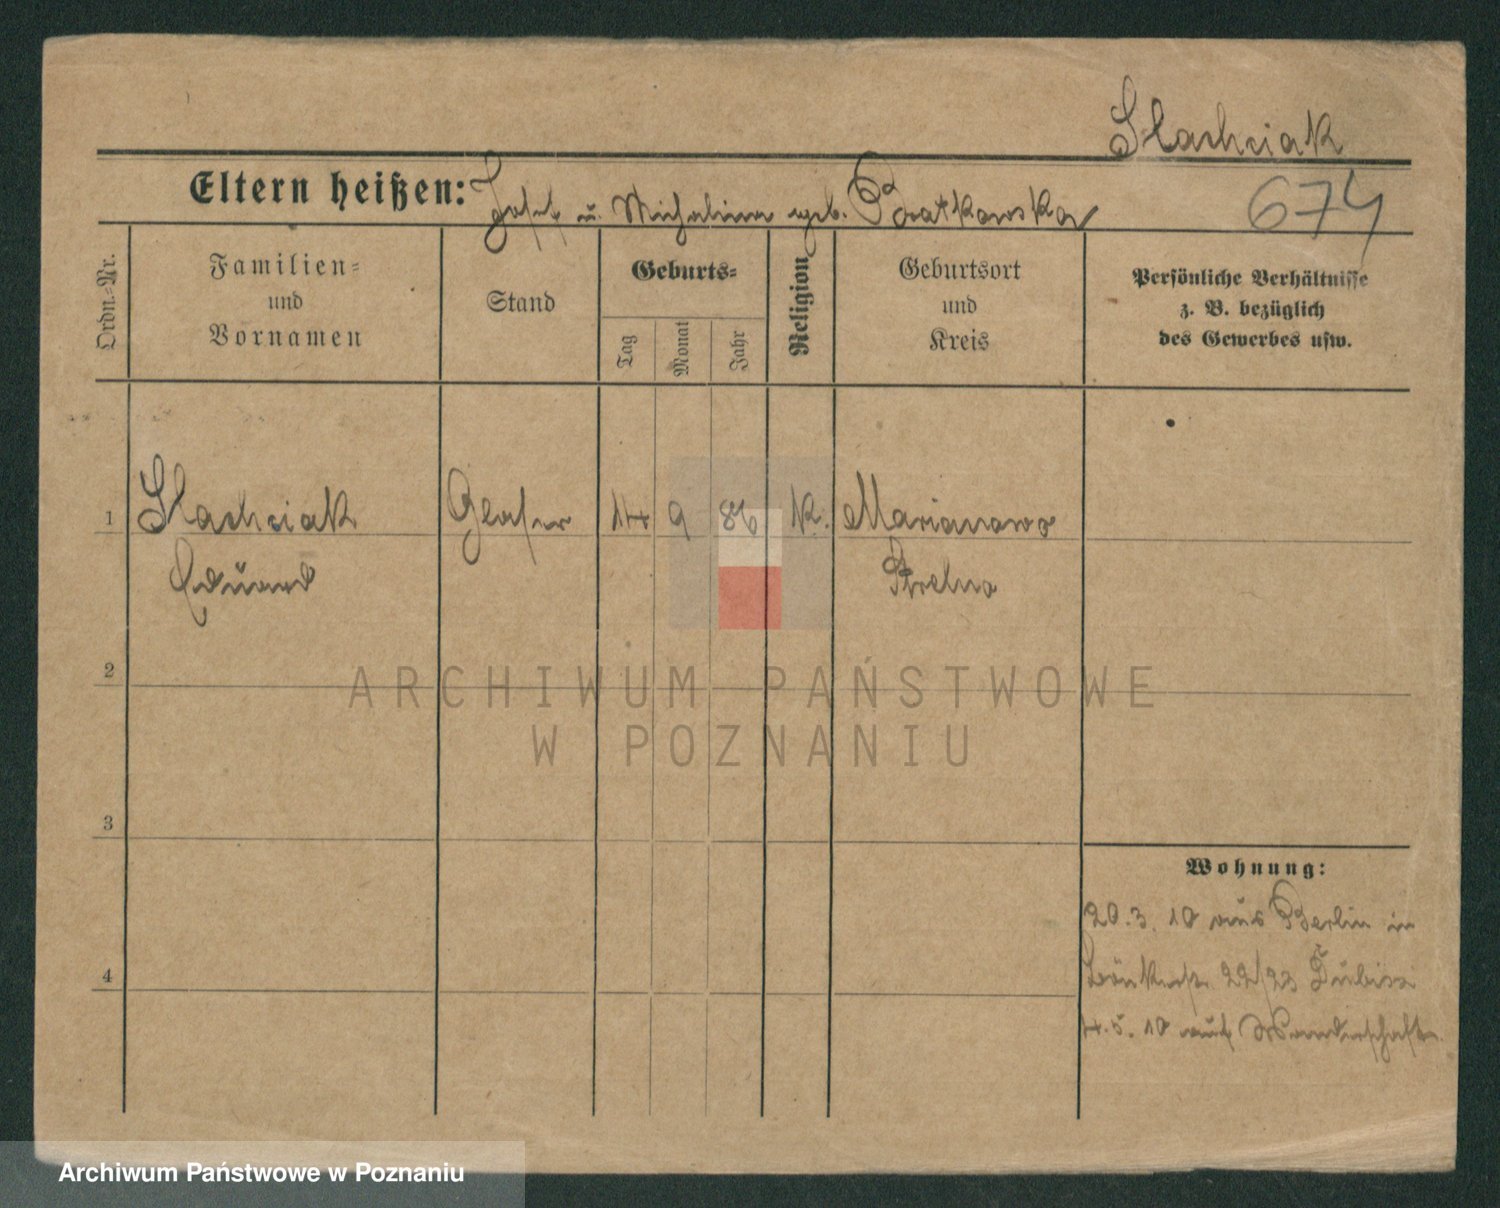 Slachciak
Eltern heißen: Josef u. Michalina geb. Piatkowska
674
Ordn.-Nr.
Familien-
und
Vornamen
Stand
Geburts-
Tag
Monat
Jahr
Religion
Geburtsort
und
Kreis
Persönliche Verhältnisse
z. B. bezüglich
des Gewerbes usw.
1 Slachciak Glaser 14 9 86 K. Marianowo
Eduard Strelno
2
3
4
Wohnung:
20.3.10 aus Berlin in
22/23
4.5.10 auf Wanderschaft.
ARCHIWUM PAŃSTWOWE
W POZNANIU
Archiwum Państwowe w Poznaniu